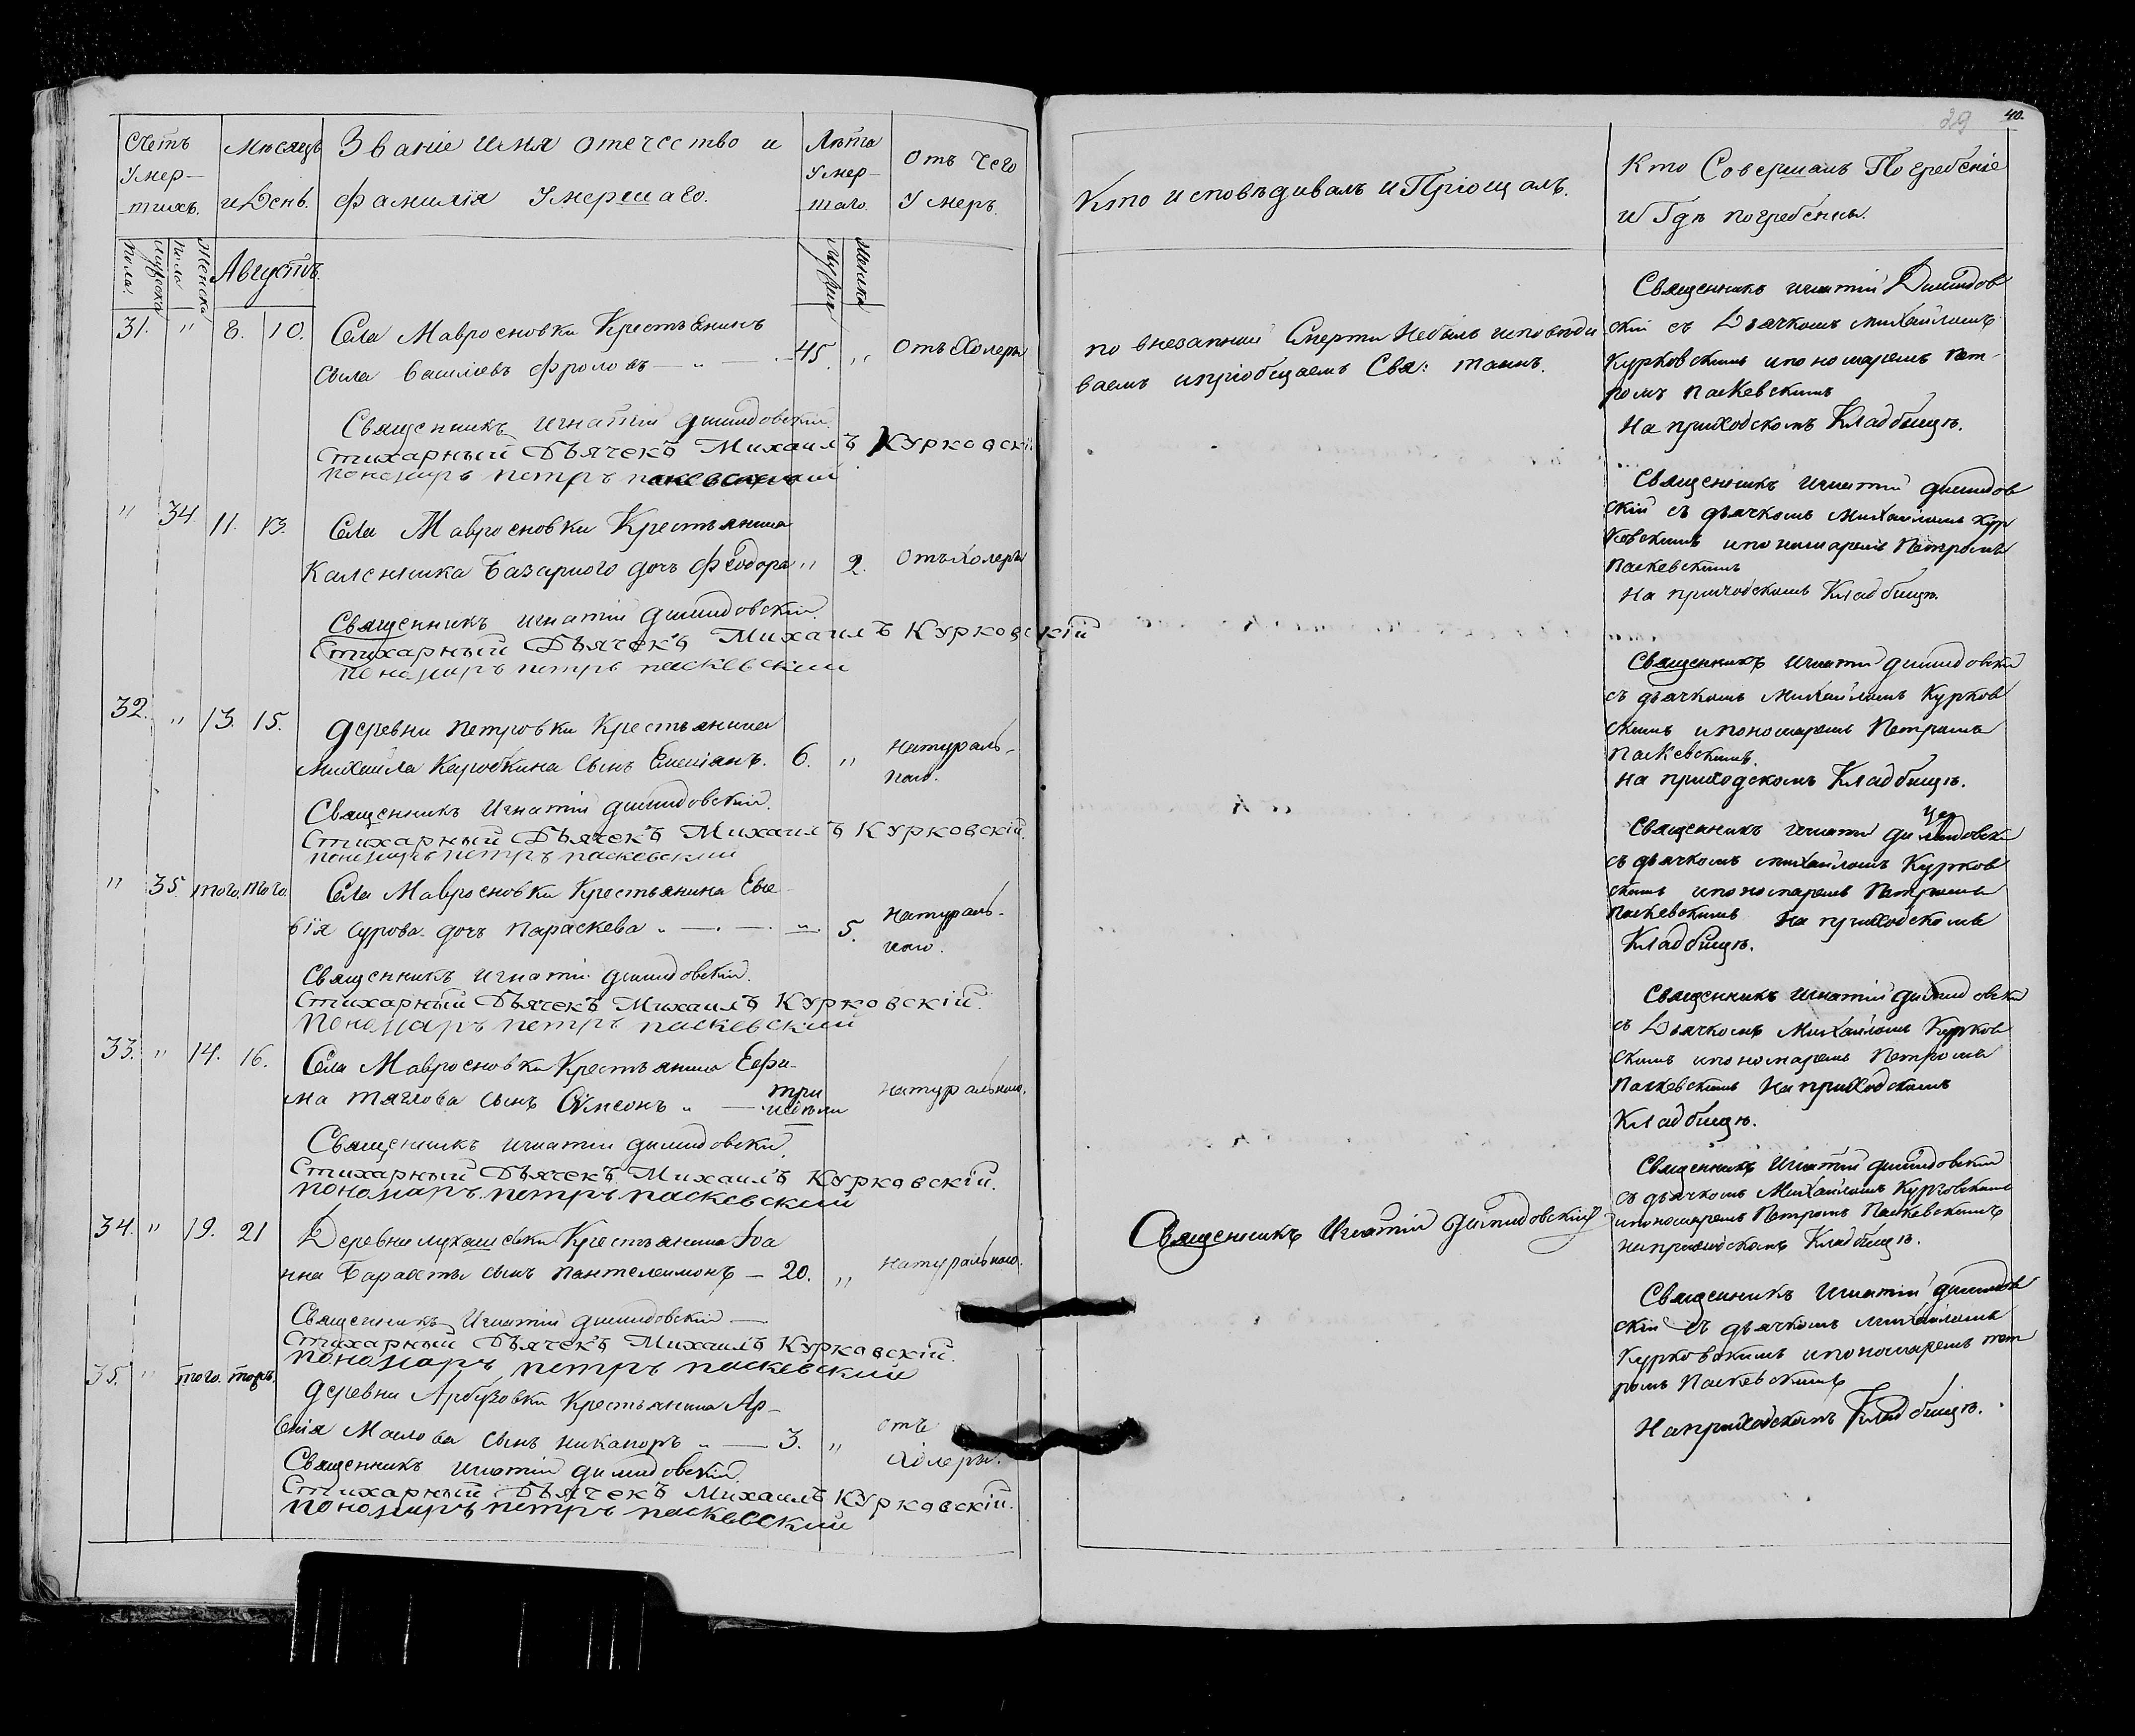 29
40.
Счетъ
Умер-
шихъ.
Мѣсяцъ
и День.
Званіе имя отечество и
фамилія Умершаго.
Лѣта
Умер-
шаго.
Отъ чего
Умеръ.
Кто исповѣдивалъ и Пріощалъ.
Кто Совершалъ Погребеніе
и Гдѣ погребены.
Мужеска
пола.
Женска
пола
Августъ.
31. " 8. 10. Села Мавросновки Крестьянинъ
Сыла Василіевъ Фроловъ — " — 45. " Отъ Холеры
по внезапной Смерти Небылъ исповѣди
ваемъ ипріобщаемъ Свя: таинъ.
Священникъ игнатій Димидов
скій съ Дьячкомъ михайломъ
Курковскимъ ипономаремъ пет-
ромъ паскевскимъ
На приходскомъ Кладбищѣ.
Священникъ игнатій димидовскій.
Стихарный Дьячекъ Михаилъ Курковскій
пономаръ петръ паскевский
" 34. 11. 13. Села Мавросновки Крестьянина
Каленника Базарного дочь Феодора " 2. Отъ Холеры
Священникъ игнатій димидов
скій съ дьячкомъ михайломъ Кур
ковскимъ ипономаремъ Петромъ
паскевскимъ
На приходскомъ Кладбищѣ.
Священникъ игнатій димидовскій.
Стихарный Дьячекъ Михаилъ Курковскій
пономаръ петръ паскевский
32. " 13. 15. деревни петровки Крестьянина
михаила Каробкина сынъ Емеліанъ. 6. " натураль-
ного.
Священникъ игнатій димидовскій
съ дьячкомъ михайломъ Курков
скимъ ипономаремъ Петромъ
паскевскимъ.
на приходскомъ Кладбищѣ.
Священникъ Игнатій димидовскій.
Стихарный Дьячекъ Михаилъ Курковскій.
пономаръ петръ паскевский
" 35. того. того. Села Мавросновки Крестьянина Евс-
вія Сурова дочь Параскева " — " — 5. натураль-
ного.
Священникъ игнатій димидовскій
съ дьячкомъ михайломъ Курков
скимъ ипономаремъ Петромъ
паскевскимъ На приходскомъ
Кладбищѣ.
Священникъ игнатій димидовскій.
Стихарный Дьячекъ Михаилъ Курковскій.
пономаръ петръ паскевский
33. " 14. 16. Села Мавросновки Крестьянина Еефи-
ма тяглова сынъ Симеонъ " — три
недѣли натурального.
Священникъ игнатій димидовскій
съ Дьячкомъ Михайломъ Курков
скимъ ипономаремъ Петромъ
паскевскимъ На приходскомъ
Кладбищѣ.
Священникъ игнатій димидовскій.
Стихарный Дьячекъ Михаилъ Курковскій.
пономаръ петръ паскевский
34. " 19. 21 Деревни лукашевки Крестьянина Іоа
нна Барабаты сынъ пантелеимонъ — 20. " натурального.
Священникъ Игнатій димидовскій
Священникъ Игнатій димидовскій
съ дьячкомъ Михайломъ Курковскимъ
ипономаремъ Петромъ Паскевскимъ
на приходскомъ Кладбищѣ.
Священникъ Игнатій димидовскій —
Стихарный Дьячекъ Михаилъ Курковскій.
пономаръ петръ паскевский
35. " того. тогъ. деревни Арбузовки Крестьянина Ар-
сенія Маслова сынъ никаноръ " — 3. " отъ
Холеры.
Священникъ игнатій димидов
скій съ дьячкомъ михайломъ
Курковскимъ ипономаремъ пет
ромъ паскевскимъ
На приходскомъ Кладбищѣ.
Священникъ игнатій димидовскій.
Стихарный Дьячекъ Михаилъ Курковскій.
пономаръ петръ паскевский